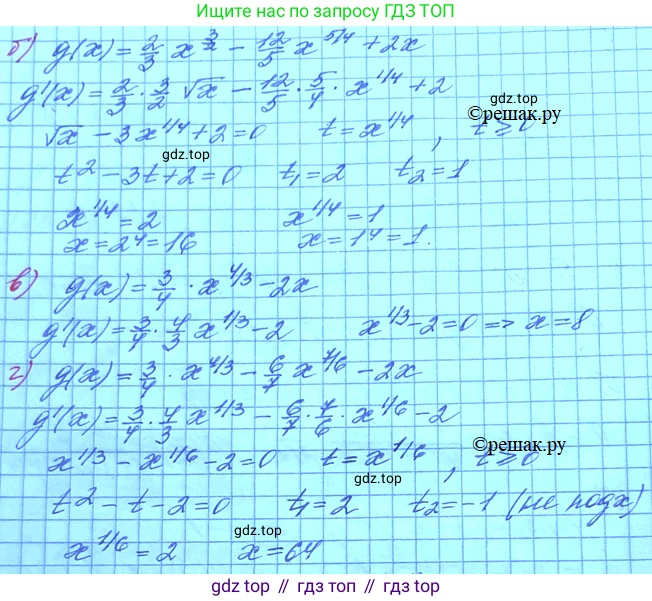 Ищите нас по запросу ГДЗ ТОП
б) g(x) = 2/3 x^(3/2) − 12/5 x^(5/4) + 2x
g'(x) = 2/3 · 3/2 √x − 12/5 · 5/4 · x^(1/4) + 2
gdz.top
√x − 3x^(1/4) + 2 = 0 t = x^(1/4), t ⩾ 0
©решак.ру
gdz.top
t² − 3t + 2 = 0 t₁ = 2 t₂ = 1
x^(1/4) = 2 x^(1/4) = 1
x = 2⁴ = 16 x = 1⁴ = 1.
gdz.top
в) g(x) = 3/4 · x^(4/3) − 2x
g'(x) = 3/4 · 4/3 x^(1/3) − 2 x^(1/3) − 2 = 0 => x = 8
gdz.top
г) g(x) = 3/4 · x^(4/3) − 6/7 x^(7/6) − 2x
g'(x) = 3/4 · 4/3 x^(1/3) − 6/7 · 7/6 · x^(1/6) − 2
©решак.ру
x^(1/3) − x^(1/6) − 2 = 0 t = x^(1/6), t ⩾ 0
gdz.top
t² − t − 2 = 0 t₁ = 2 t₂ = −1 (не подх)
gdz.top
x^(1/6) = 2 x = 64
gdz.top // гдз.топ // gdz.top // гдз.топ